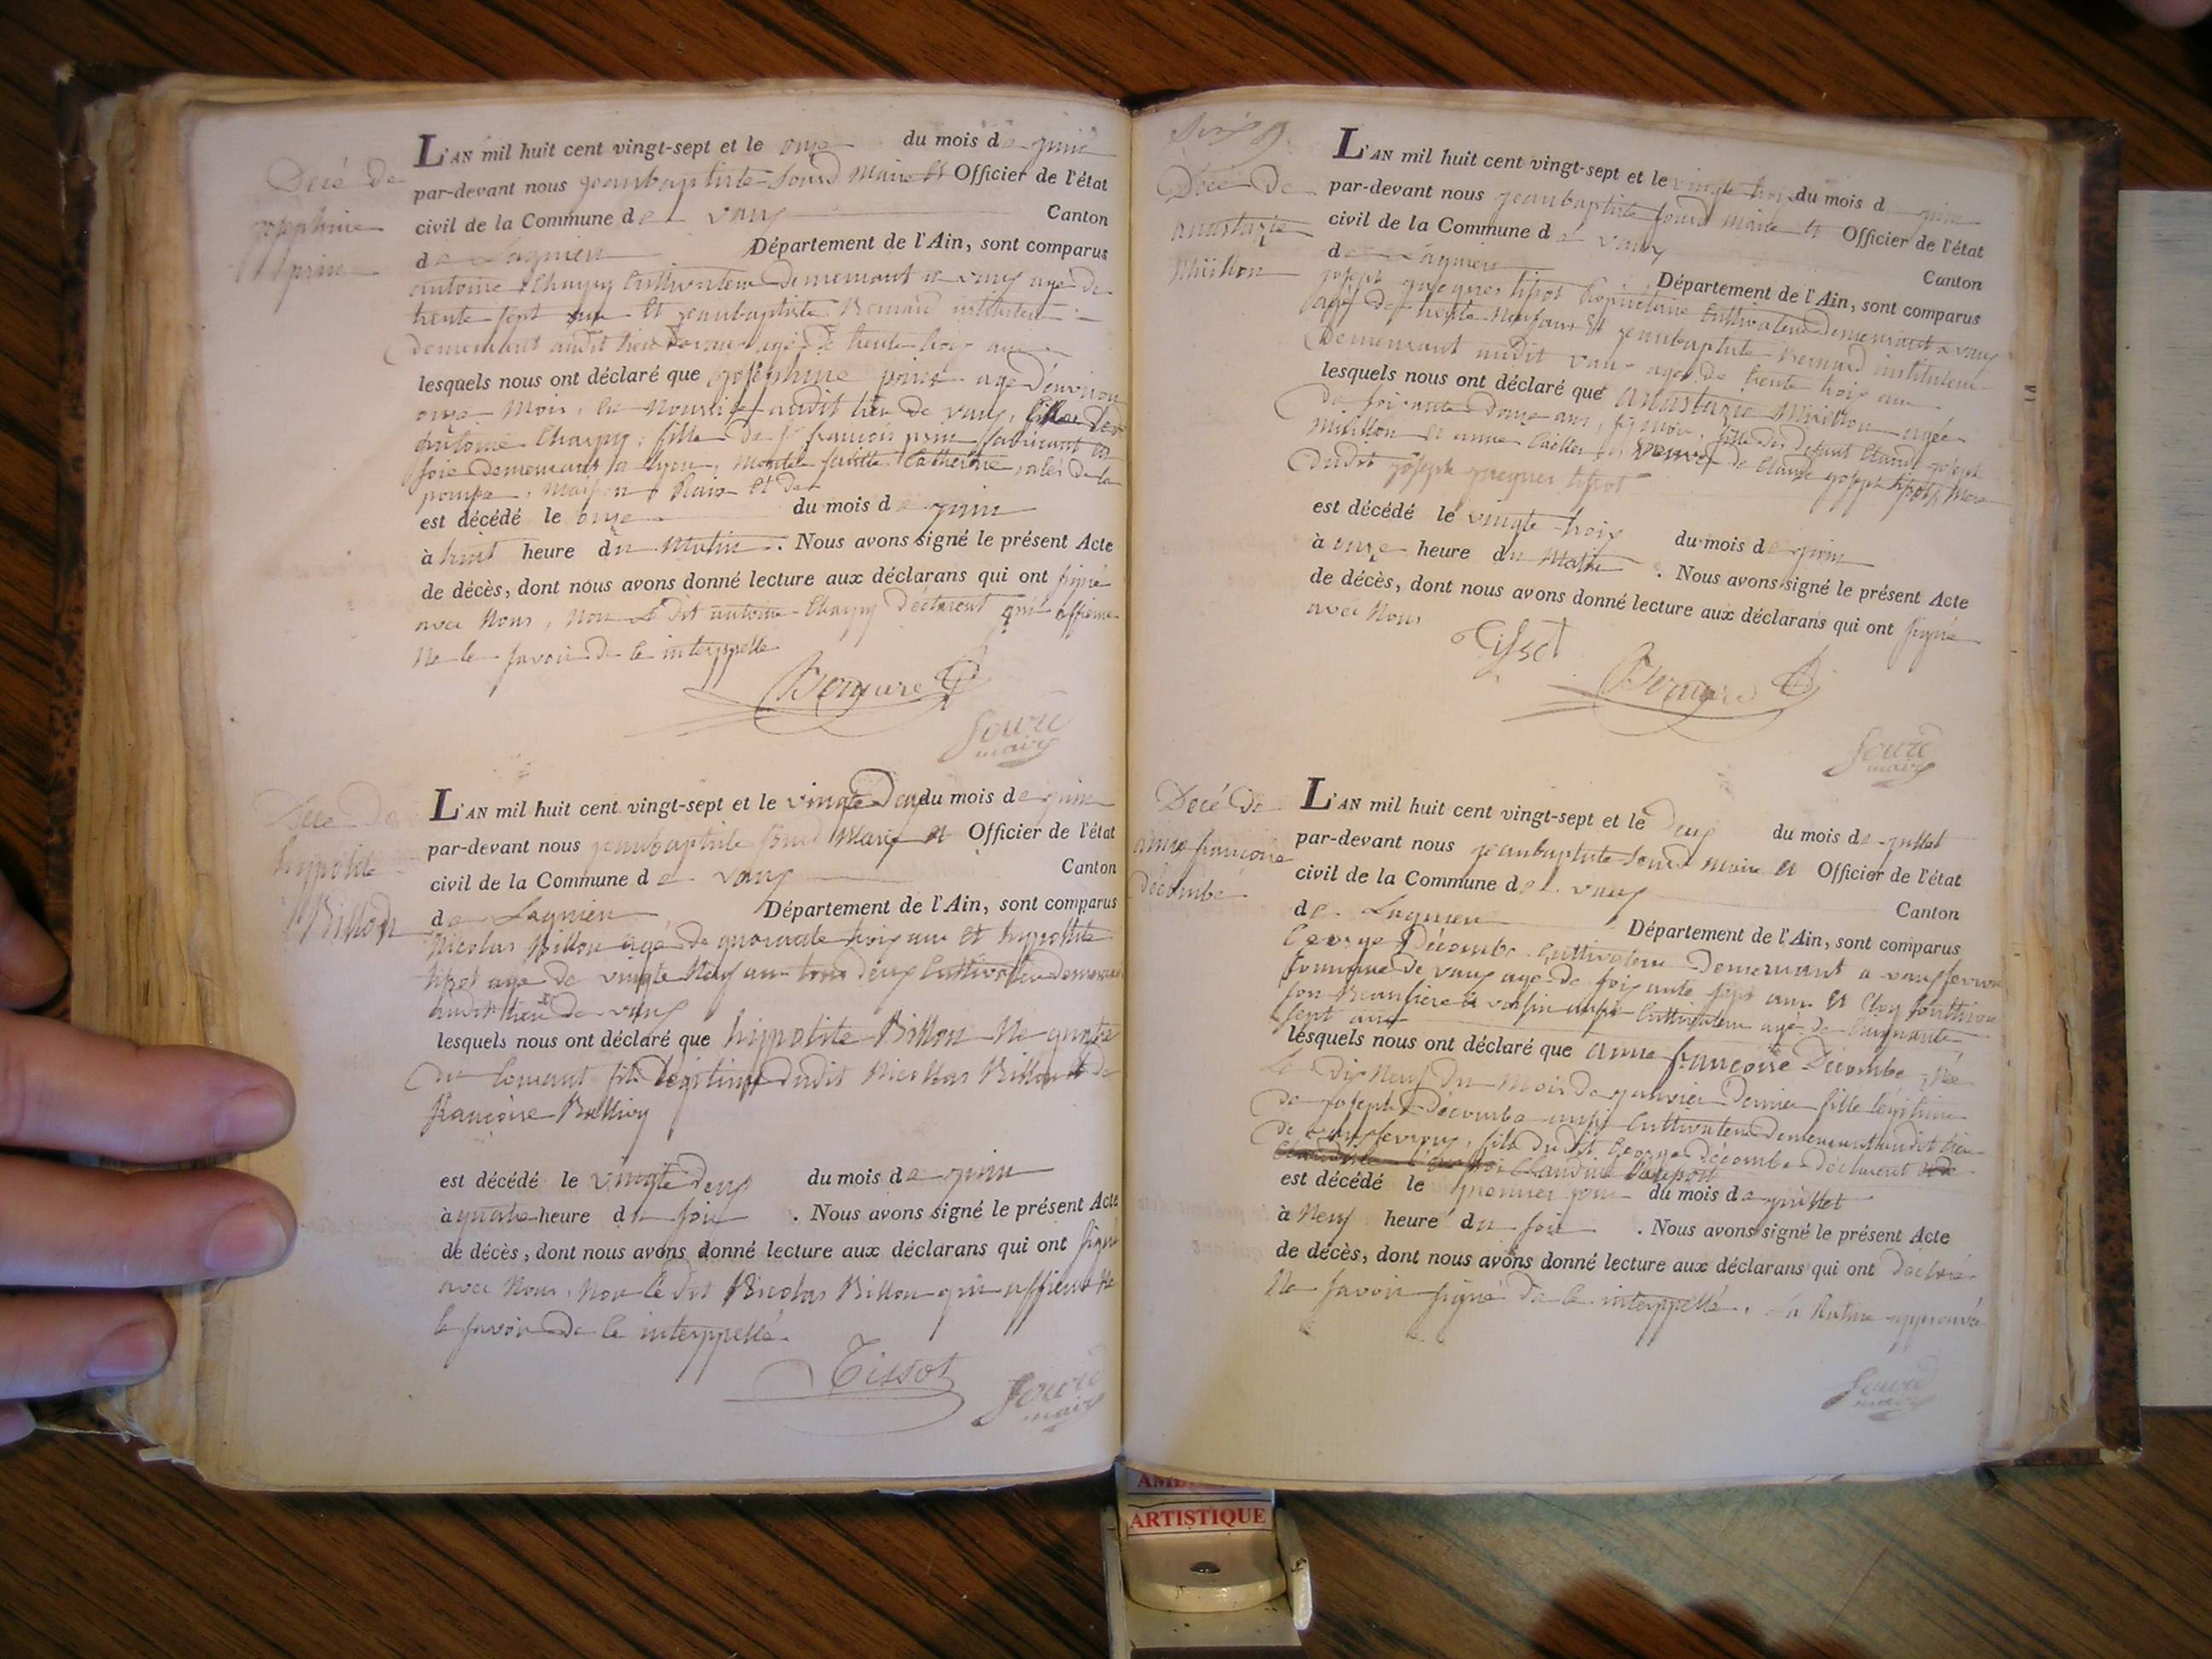 Decé de
josephine
prin
L'AN mil huit cent vingt-sept et le onze du mois de juin
par-devant nous jeanbaptiste Sourd Maire et Officier de l'état
civil de la Commune de vaux Canton
de Lagnieu Département de l'Ain, sont comparus
antoine Charpy Cultivateur demeurant a vaux agé de
trente sept ans et jeanbaptiste Bernard instituteur
demeurant audit lieu de vaux agé de trente trois ans
lesquels nous ont déclaré que josephine prin agé d'environ
onze Mois, en Nourrice audit lieu de vaux,
antoine Charpy, fille de Sr françois prin fabricant en
soie demeurant a Lyon, Montée Catherine, de la
Maison et de
est décédé le onze du mois de juin
à huit heure du Matin. Nous avons signé le présent Acte
de décès, dont nous avons donné lecture aux déclarans qui ont signé
avec Nous, Non le dit antoine Charpy déclarent qui affirme
Ne le savoir de ce interppellé
Bernard
Sourd
maire
Decé de
hypolite
Billon
L'AN mil huit cent vingt-sept et le vingte deux du mois de juin
par-devant nous jeanbaptiste Sourd Maire et Officier de l'état
civil de la Commune de vaux Canton
de Lagnieu Département de l'Ain, sont comparus
Nicolas Billon agé de quarante trois ans et hypollite
tisot agé de vingte Neuf ans tous deux Cultivateur demeurant
audit lieu de vaux
lesquels nous ont déclaré que hippolite Billon Né quatre
du Courant fils légitime dudit Nicollas Billon et de
françoise
est décédé le vingte deux du mois de juin
à quatre heure du soir. Nous avons signé le présent Acte
de décès, dont nous avons donné lecture aux déclarans qui ont signé
avec Nous, Non le dit Nicolas Billon qui affirme Ne
le savoir de ce interppellé
Tissot
Sourd
maire
Decé de
anastazie
Miillon
L'AN mil huit cent vingt-sept et le vingte trois du mois de juin
par-devant nous jeanbaptiste Sourd Maire et Officier de l'état
civil de la Commune de vaux Canton
de Lagnieu Département de l'Ain, sont comparus
joseph jacques tisot Propriétaire Cultivateur demeurant a vaux
agé de trente Neuf ans Et jeanbaptiste Bernard instituteur
Demeurant audit vaux agé de trente trois ans
lesquels nous ont déclaré que anastazie Miillon agée
de soixante douze ans, fille des defunt Claude joseph
Miillon et anne veuve de Claude joseph tisot, Mere
dudit joseph jacques tisot
est décédé le vingte trois du mois de juin
à onze heure du Matin. Nous avons signé le présent Acte
de décès, dont nous avons donné lecture aux déclarans qui ont signé
avec Nous
Tysot
Bernard
Sourd
maire
Decé de
anne françoise
décombe
L'AN mil huit cent vingt-sept et le deux du mois de juillet
par-devant nous jeanbaptiste Sourd Maire et Officier de l'état
civil de la Commune de vaux Canton
de Lagnieu Département de l'Ain, sont comparus
George Décombe Cultivateur Demeurant a vauxfevroux
Commune de vaux agé de soixante sept ans et
son Beaufrere et voisin aussi Cultivateur agé de Cinquante
sept ans
lesquels nous ont déclaré que anne françoise Décombe, Née
Le dix Neuf du Mois de janvier Dernier fille légitime
de joseph Décombe aussi Cultivateur demeurant audit lieu
de vauxfevroux, fils dudit George décombe déclarent
Claudine
est décédé le premier jour du mois de juillet
à Neuf heure du soir. Nous avons signé le présent Acte
de décès, dont nous avons donné lecture aux déclarans qui ont déclaré
Ne savoir signé de ce interppellé, la Rature approuvée
Sourd
maire
ARTISTIQUE